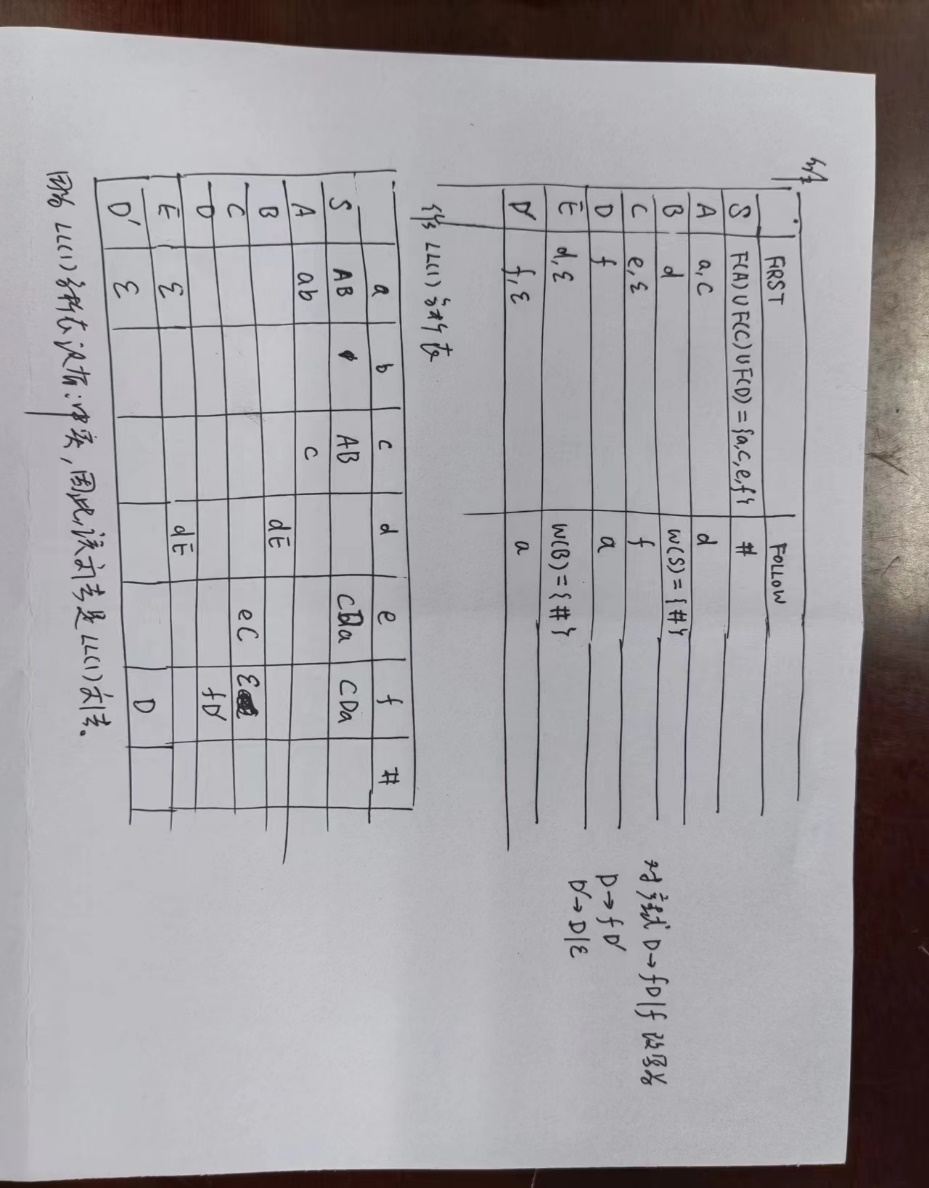 FIRST FOLLOW
S F(A)∪F(C)∪F(D)={a,c,e,f} #
A a,c d
B d W(S)={#}
C e,ε f
D f a
E d,ε W(B)={#}
D' f,ε a
对 D→fD|f 改写为
D→fD'
D'→D|ε
LL(1)分析表
a b c d e f #
S AB AB CDa CDa
A ab c
B dE
C eC ε
D fD'
E ε dE
D' ε D
因为LL(1)分析表没有冲突,因此,该文法是LL(1)文法。